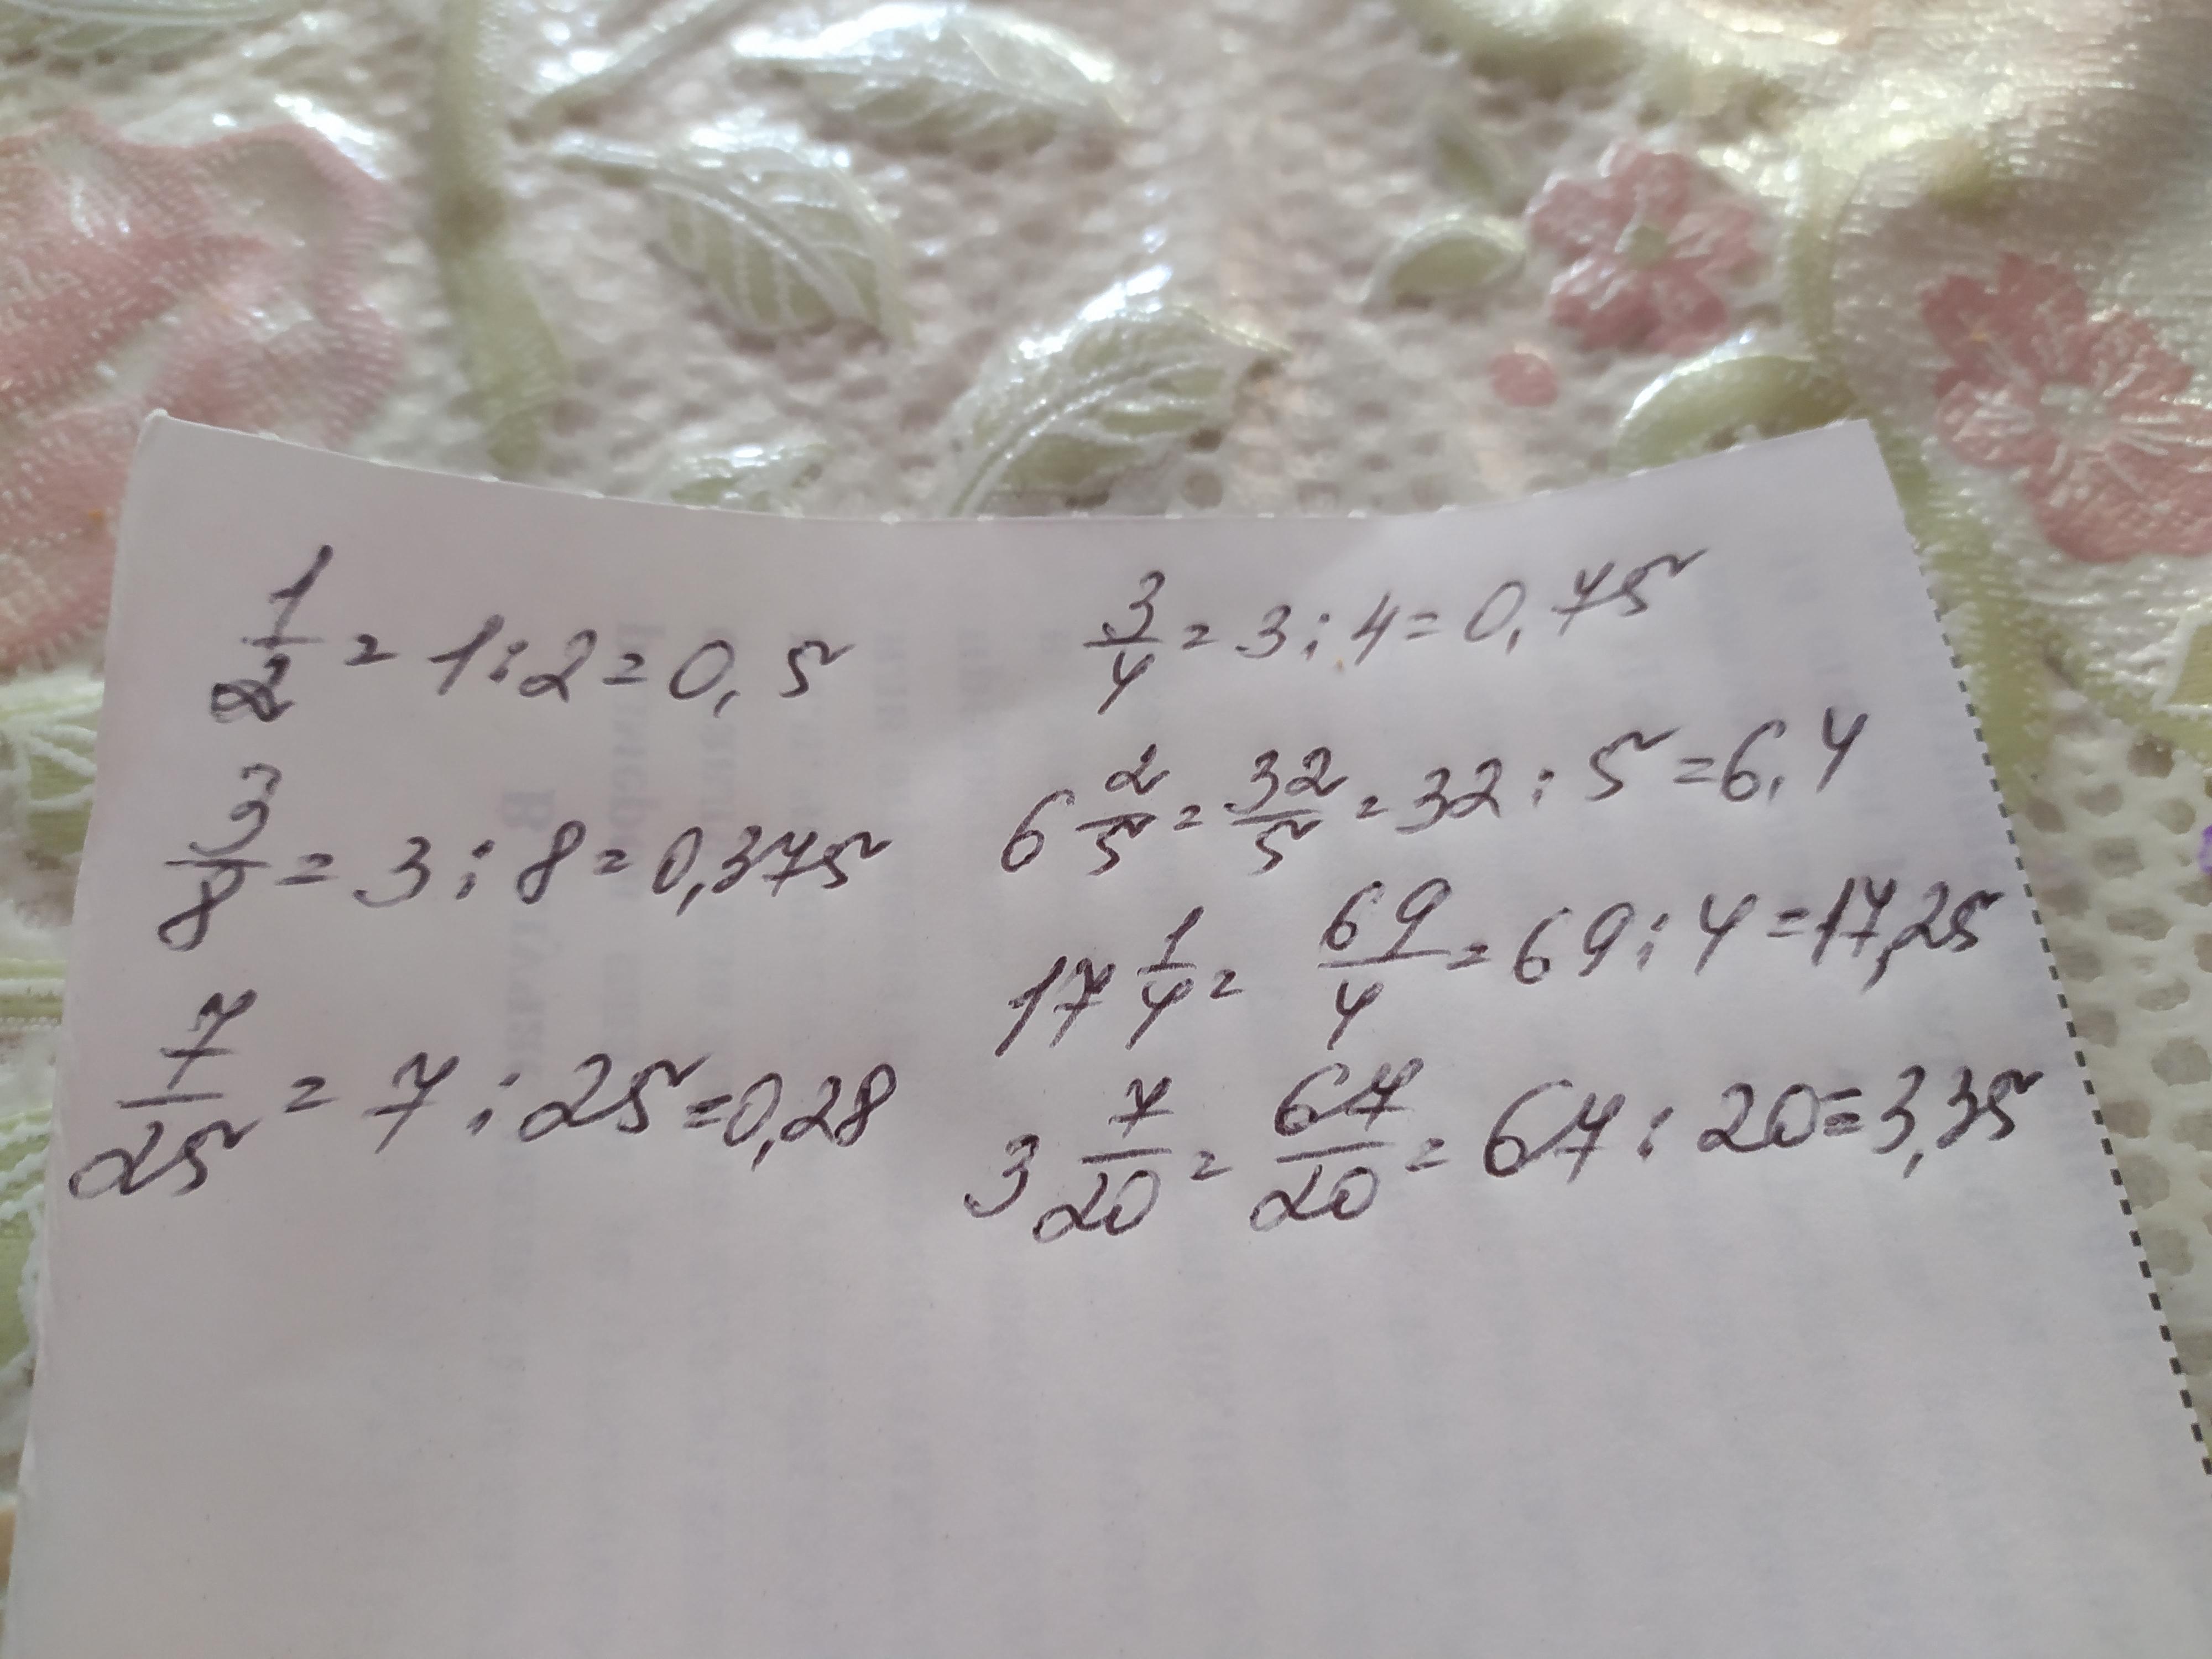 1/2 = 1:2 = 0,5
3/8 = 3:8 = 0,375
7/25 = 7:25 = 0,28
3/4 = 3:4 = 0,75
6 2/5 = 32/5 = 32:5 = 6,4
17 1/4 = 69/4 = 69:4 = 17,25
3 7/20 = 67/20 = 67:20 = 3,35